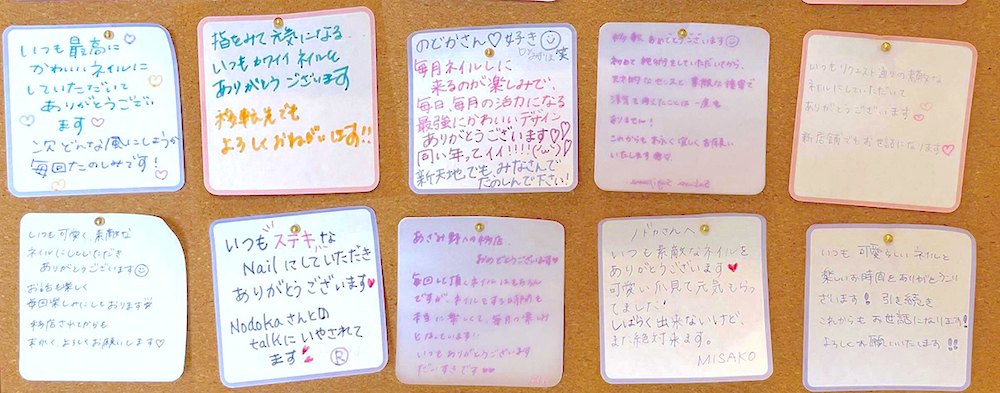 いつも最高に
かわいいネイルに
していただいて
ありがとうござい
ます♡
次どんな風にしようか
毎回たのしみです!
指をみて元気になる
いつもカワイイネイルを
ありがとうございます
移転先でも
よろしくおねがいします!!
のどかさん♡好き☺
笑
毎月ネイルしに
来るのが楽しみで、
毎日、毎月の活力になる
最強にかわいいデザイン
ありがとうございます♡♡
同い年ってイイ!!!!
新天地でも、みなさんで
たのしんで下さい!
移転おめでとうございます☺
初めて担当をしていただいてから、
天才的なセンスと素敵な接客で
浮気を考したことは一度も
ありません!
これからも末永く宜しくお願い
いたします
いつもリクエスト通りの素敵な
ネイルにしていただいて
ありがとうございます♡
新店舗でもお世話になります♡
いつも可愛く、素敵な
ネイルにしていただき
ありがとうございます☺
お話も楽しく
毎回楽しみにしております
移店されてからも
よろしくお願いします♡
いつもステキな
Nailにしていただき
ありがとうございます♥
Nodokaさんとの
talkにいやされて
ます
Ⓡ
あざみ野への移店
おめでとうございます
毎回して頂くネイルはもちろん
ですが、ネイルをする時間も
本当に楽しくて、毎月の楽しみ
となっています!
いつもありがとうございます
だいすきです♥♥
ノドカさんへ
いつも素敵なネイルを
ありがとうございます♥
可愛い爪見て元気もらっ
てました!
しばらく出来ないけど、
また絶対来ます。
MISAKO
いつも可愛らしいネイルと
楽しいお時間をありがとうご
ざいます!引き続き
これからもお世話になります!
よろしくお願いいたします!!